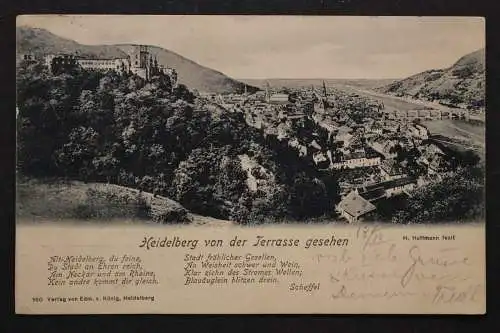 Heidelberg von der Terrasse gesehen
H. Hoffmann fecit
Alt-Heidelberg, du feine,
Du Stadt an Ehren reich,
Am Neckar und am Rheine,
Kein andre kommt dir gleich.
Stadt fröhlicher Gesellen,
An Weisheit schwer und Wein,
Klar ziehn des Stromes Wellen;
Blauäuglein blitzen drein.
Scheffel
Verlag von Edm. v. König, Heidelberg